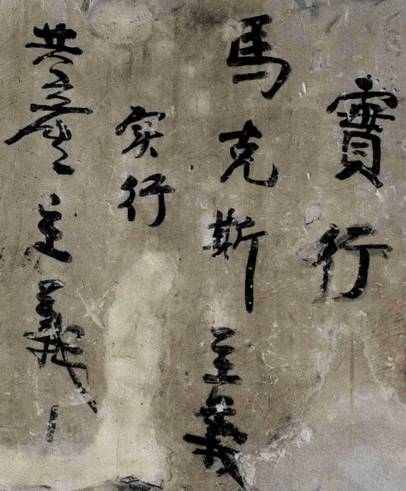 實行
馬克斯主義
实行
共產主義